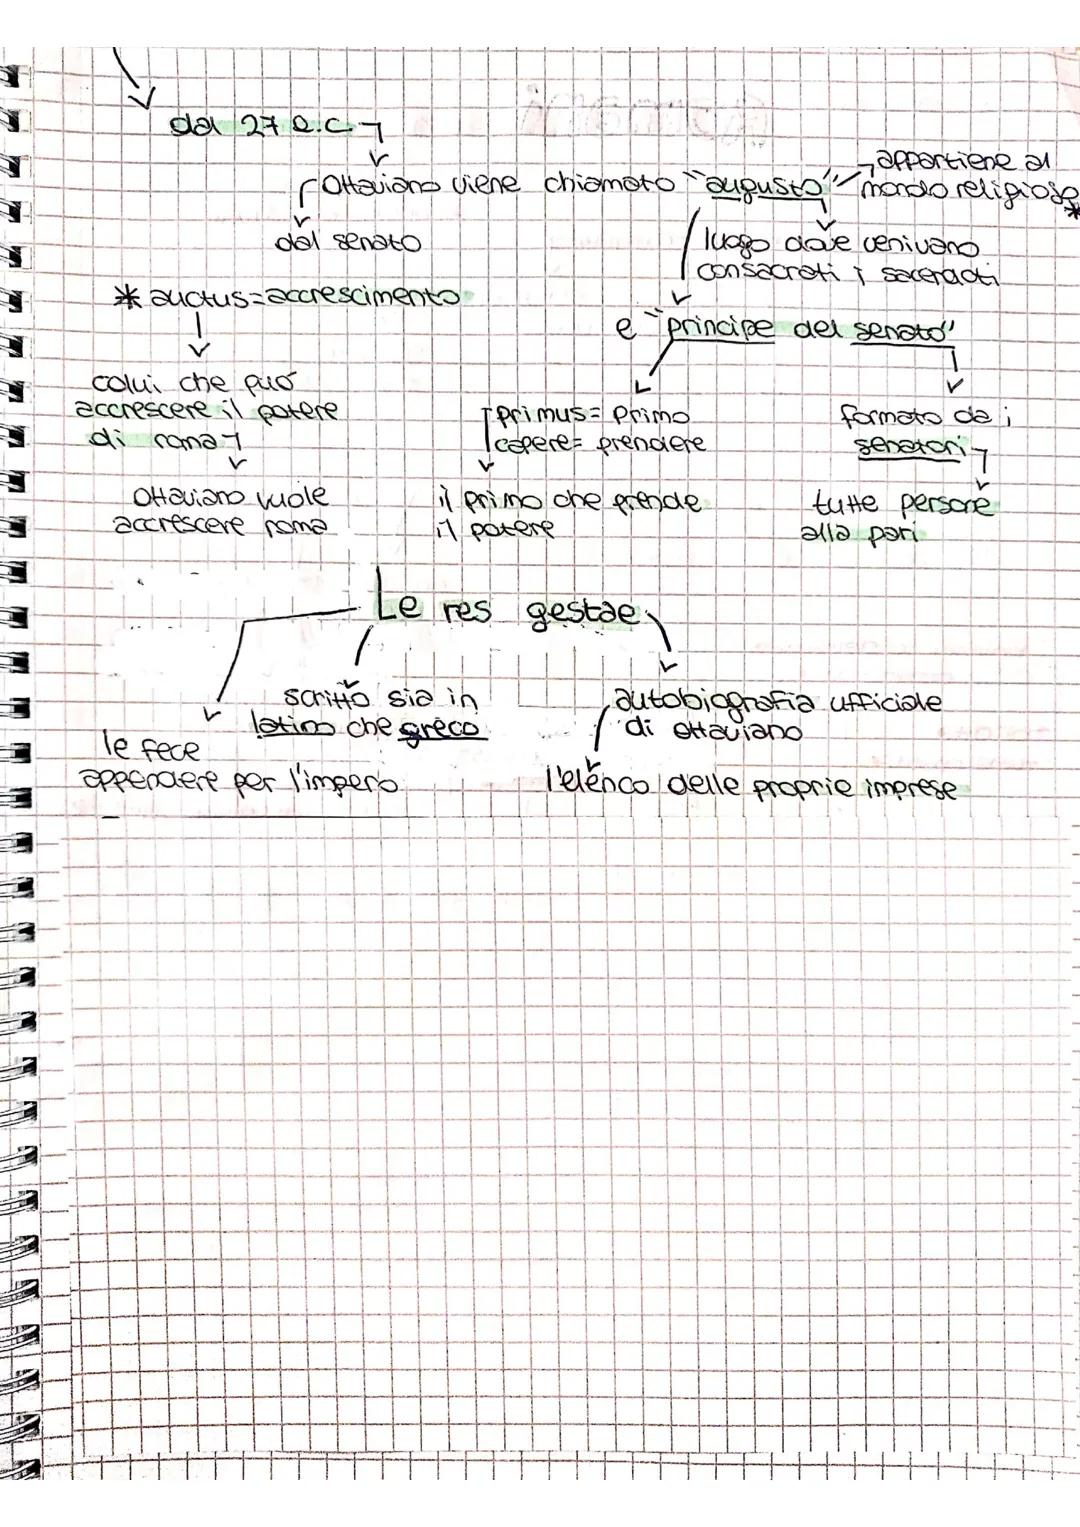 dal 27 a.C
Ottaviano viene chiamato "augusto"
appartiene al
mondo religioso
*
dal senato
luogo dove venivano
consacrati i sacerdoti
* auctus=accrescimento
e "principe del senato"
colui che può
accrescere il potere
di roma
primus= primo
capere= prendere
formato da i
senatori
Ottaviano vuole
accrescere roma
il primo che prende
il potere
tutte persone
alla pari
Le res gestae
scritto sia in
latino che greco
autobiografia ufficiale
di ottaviano
le fece
appendere per l'impero
l'elenco delle proprie imprese